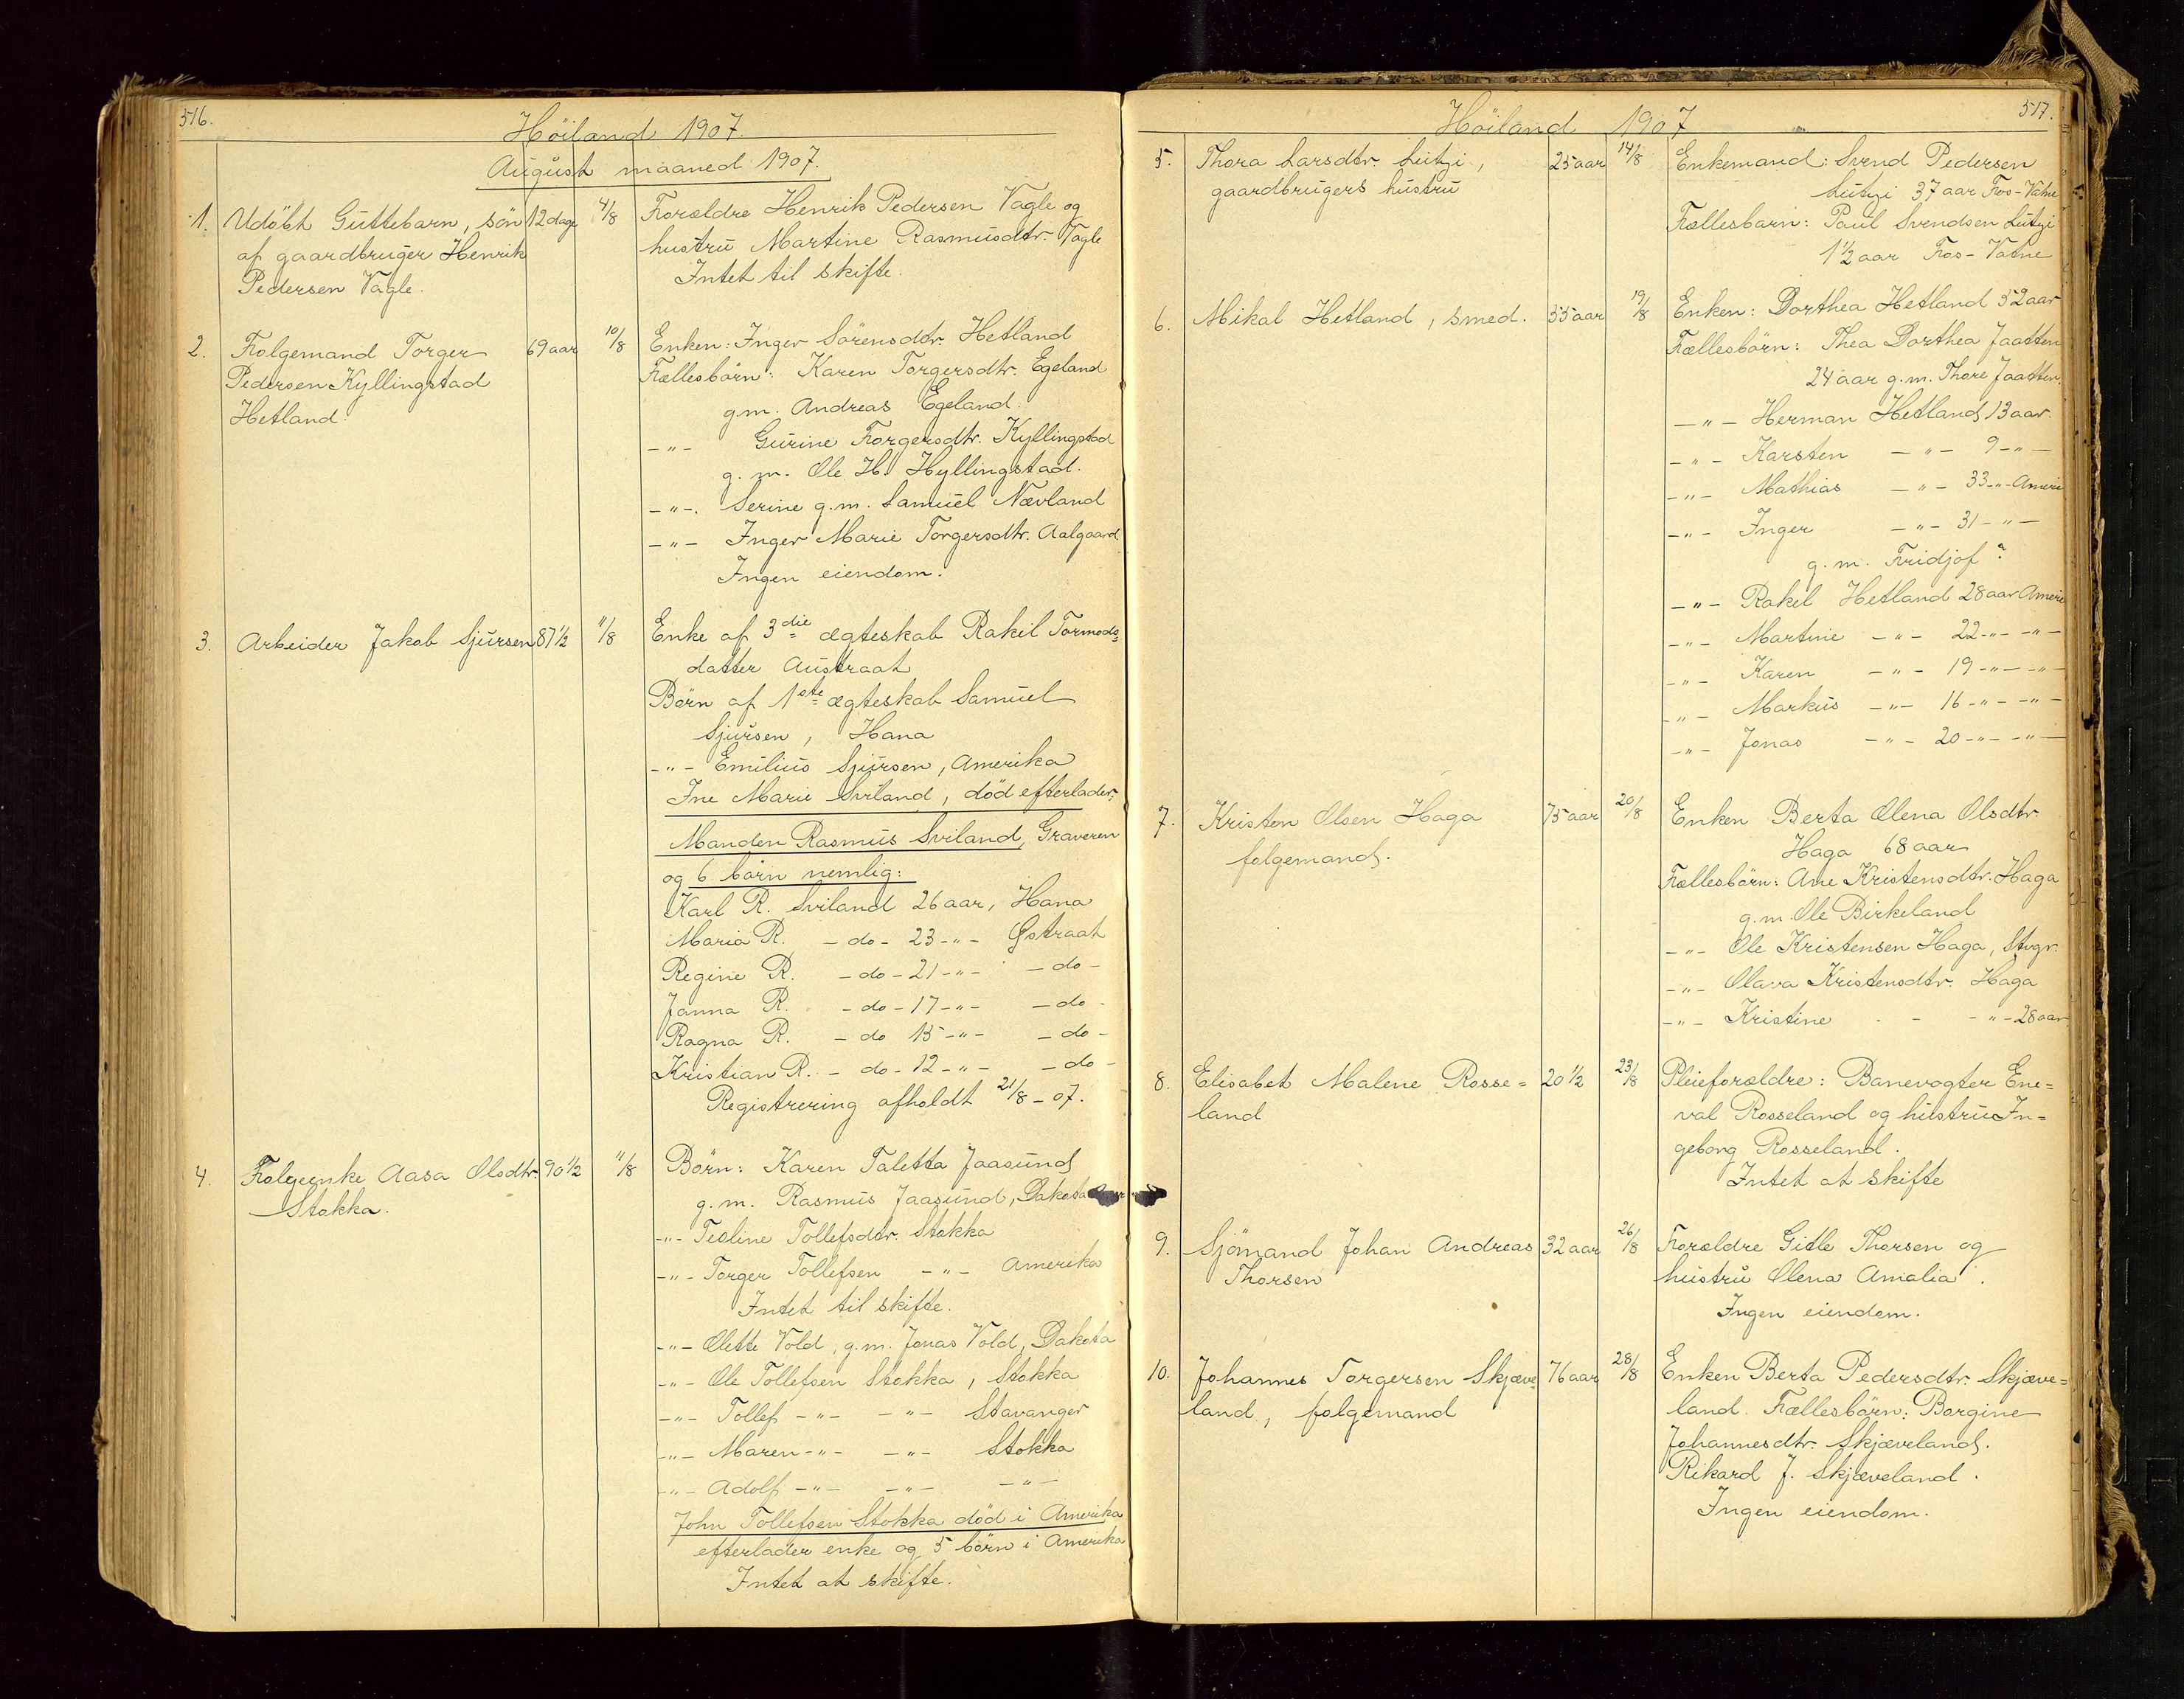 516.
Höiland 1907.
August maaned 1907.
1. Udöbt Guttebarn, sön 12 dage 4/8 Forældre Henrik Pedersen Vagle og
af gaardbruger Henrik hustru Martine Rasmusdtr. Vagle
Pedersen Vagle. Intet til skifte.
2. Folgemand Torger 69 aar 10/8 Enken: Inger Sörensdtr. Hetland
Pedersen Kyllingstad Fællesbörn: Karen Torgersdtr. Egeland
Hetland. g.m. Andreas Egeland.
-"- Gurine Torgersdtr. Kyllingstad
g. m. Ole H. Hyllingstad.
-"-. Serine g.m. Samuel Nævland
-"- Inger Marie Torgersdtr. Aalgaard
Ingen eiendom.
3. Arbeider Jakob Sjursen 87 1/2 11/8 Enke af 3die ægteskab Rakil Tormods=
datter Austraat
Börn af 1ste ægteskab Samuel
Sjursen, Hana
-"- Emilius Sjursen, Amerika
Ine Marie Sviland, död efterlader,
Manden Rasmus Sviland, Graveren
og 6 börn nemlig:
Karl R. Sviland 26 aar, Hana
Maria R. - do - 23 -"- Østraat
Regine R. - do - 21 -"- - do -
Janna R. - do - 17 -"- - do -
Ragna R. - do 15 -"- - do -
Kristian R. - do - 12 -"- - do -
Registrering afholdt 21/8 - 07.
4. Folgeenke Aasa Olsdtr. 90 1/2 11/8 Börn: Karen Taletta Jaasund
Stokka. g.m. Rasmus Jaasund, Dakota
-"- Teoline Tollefsdtr. Stokka
-"- Torger Tollefsen -"- Amerika
Intet til skifte.
-"- Olette Vold, g.m. Jonas Vold, Dakota
-"- Ole Tollefsen Stokka, Stokka
-"- Tollef -"- -"- Stavanger
-"- Maren -"- -"- Stokka
-"- Adolf -"- -"- -"-
John Tollefsen Stokka död i Amerika
efterlader enke og 5 börn i Amerika
Intet at skifte.
517.
Höiland 1907
5. Thora Larsdtr. Lutzi, 25 aar 14/8 Enkemand: Svend Pedersen
gaardbrugers hustru Lutzi 37 aar Fos-Vatne
Fællesbarn: Paul Svendsen Lutzi
1 1/2 aar Fos-Vatne
6. Mikal Hetland, smed. 55 aar 19/8 Enken: Dorthea Hetland 52 aar
Fællesbörn: Thea Dorthea Jaatten
24 aar g.m. Thore Jaatten.
-"- Herman Hetland 13 aar.
-"- Karsten -"- 9 -"-
-"- Mathias -"- 33 -"- Ameri
-"- Inger -"- 31 -"-
g. m. Fridjof ?
-"- Rakel Hetland 28 aar Ameri
-"- Martine -"- 22 -"- -"-
-"- Karen -"- 19 -"- -"-
-"- Markus -"- 16 -"- -"-
-"- Jonas -"- 20 -"- -"-
7. Kristen Olsen Haga 75 aar 20/8 Enken Berta Olena Olsdtr.
folgemand. Haga 68 aar
Fællesbörn: Ane Kristensdtr. Haga
g.m. Ole Birkeland
-"- Ole Kristensen Haga, Stvgr.
-"- Olava Kristensdtr. Haga
-"- Kristine - - -"- 28 aar
8. Elisabet Malene Rosse= 20 1/2 23/8 Pleieforældre: Banevogter Ene=
land val Rosseland og hustru In=
geborg Rosseland.
Intet at skifte
9. Sjömand Johan Andreas 32 aar 26/8 Forældre Gitle Thorsen og
Thorsen hustru Olena Amalia.
Ingen eiendom.
10. Johannes Torgersen Skjæve= 76 aar 28/8 Enken Berta Pedersdtr. Skjæve=
land, folgemand land. Fællesbörn: Borgine
Johannesdtr. Skjæveland.
Rikard J. Skjæveland.
Ingen eiendom.